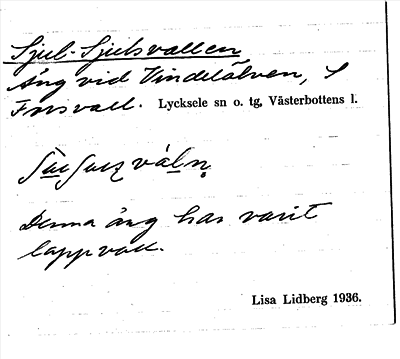 Sjul-Sjulsvallen
Äng vid Vindelälven, S
Lycksele sn o. tg, Västerbottens l.
Denna äng har varit
lappvall.
Lisa Lidberg 1936.